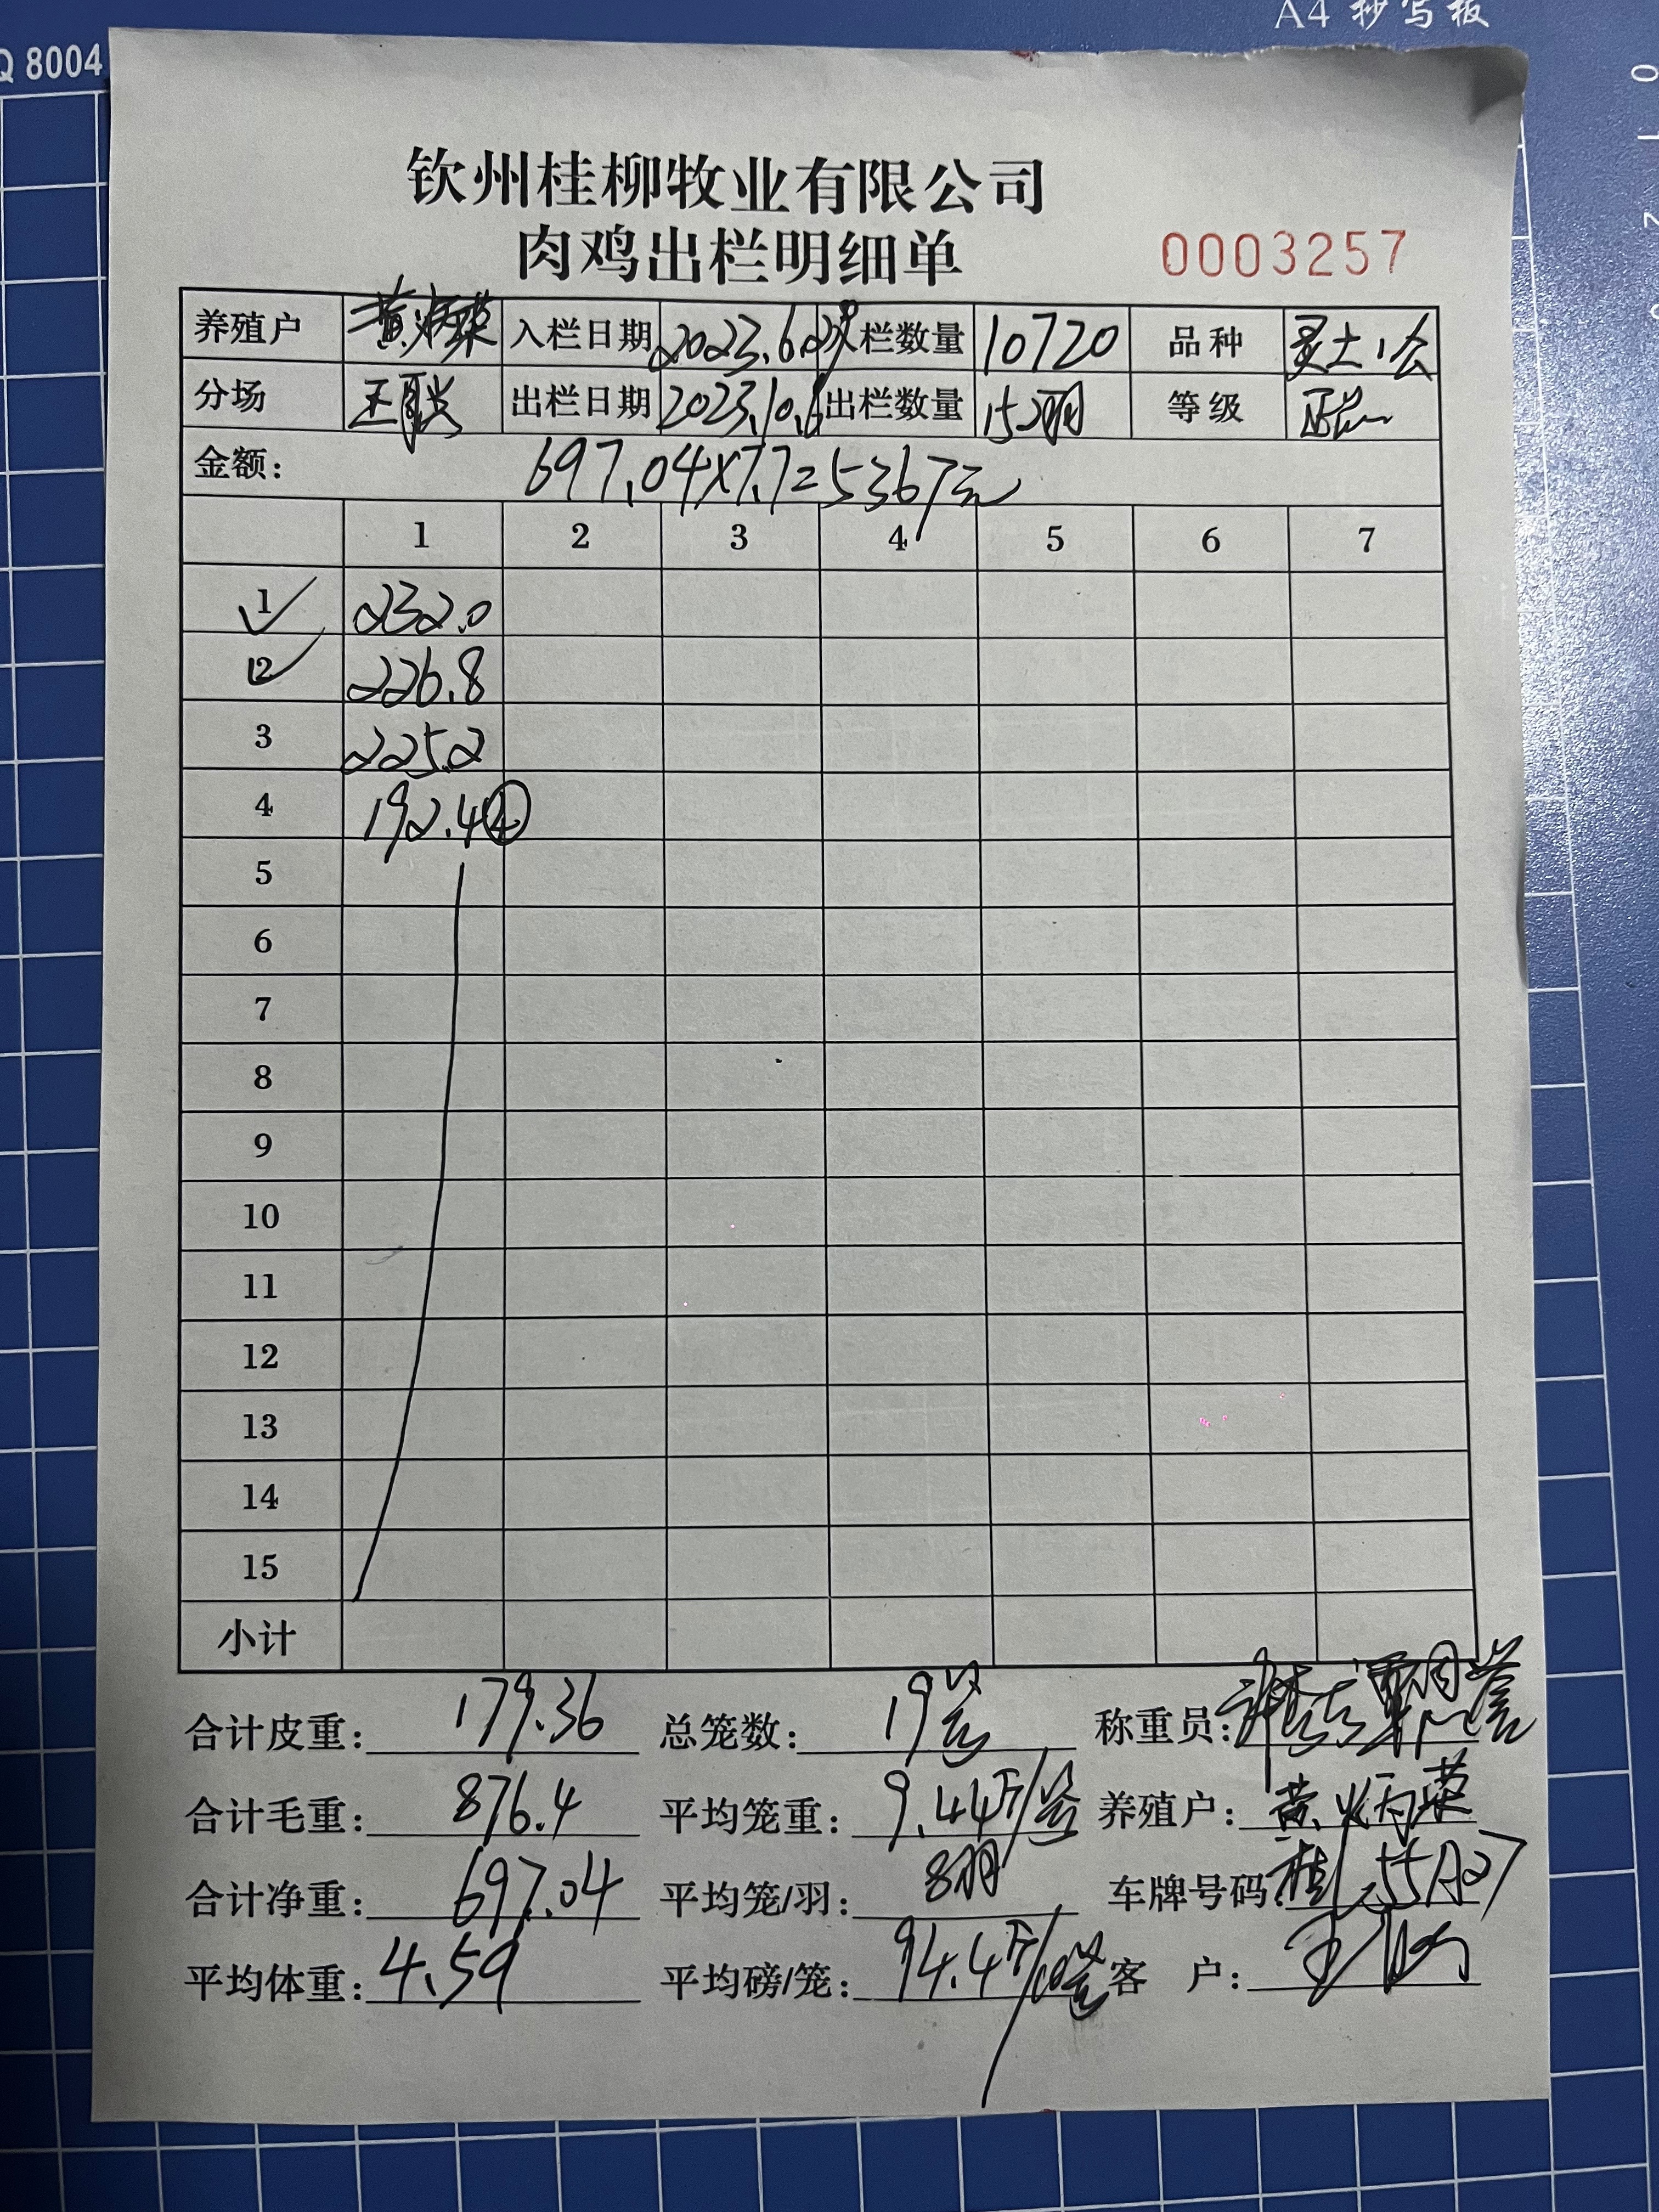 A4 抄写板
Q 8004
0
1
2
钦州桂柳牧业有限公司
肉鸡出栏明细单 0003257
养殖户 黄炳荣 入栏日期 2023.6.29 入栏数量 10720 品种 灵土1公
分场 王联 出栏日期 2023.10.6 出栏数量 152羽 等级 正品
金额: 697.04×7.7=5367元
1 2 3 4 5 6 7
1 232.0
2 226.8
3 225.2
4 192.4 ④
5
6
7
8
9
10
11
12
13
14
15
小计
合计皮重: 179.36 总笼数: 19笼 称重员:
合计毛重: 876.4 平均笼重: 9.44斤/笼 养殖户: 黄炳荣
合计净重: 697.04 平均笼/羽: 8羽 车牌号码:
平均体重: 4.59 平均磅/笼: 94.4斤/10笼 客 户: